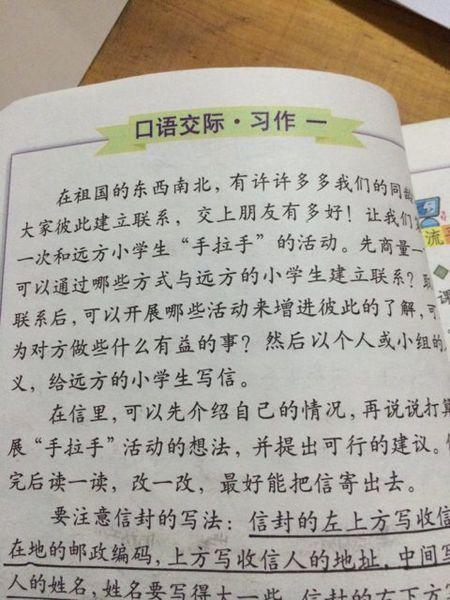 口语交际·习作 一
在祖国的东西南北，有许许多多我们的同龄
大家彼此建立联系，交上朋友有多好！让我们
一次和远方小学生“手拉手”的活动。先商量一
可以通过哪些方式与远方的小学生建立联系？取
联系后，可以开展哪些活动来增进彼此的了解，可
为对方做些什么有益的事？然后以个人或小组的
义，给远方的小学生写信。
在信里，可以先介绍自己的情况，再说说打算
展“手拉手”活动的想法，并提出可行的建议。
完后读一读，改一改，最好能把信寄出去。
要注意信封的写法：信封的左上方写收信
在地的邮政编码，上方写收信人的地址，中间写
人的姓名，姓名要写得大一些，信封的右下方写
流
课